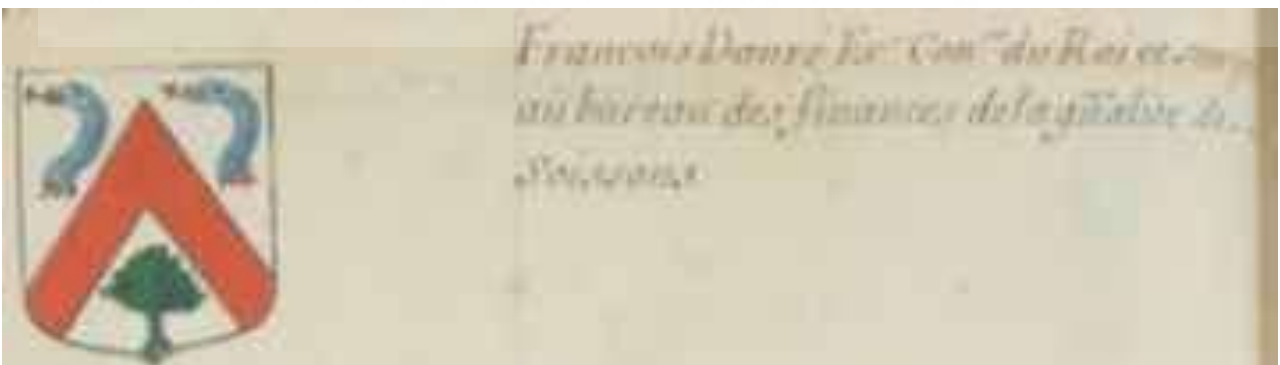 François Dauré Es.r Con.er du Roi et
au bureau des finances de la
Soissons